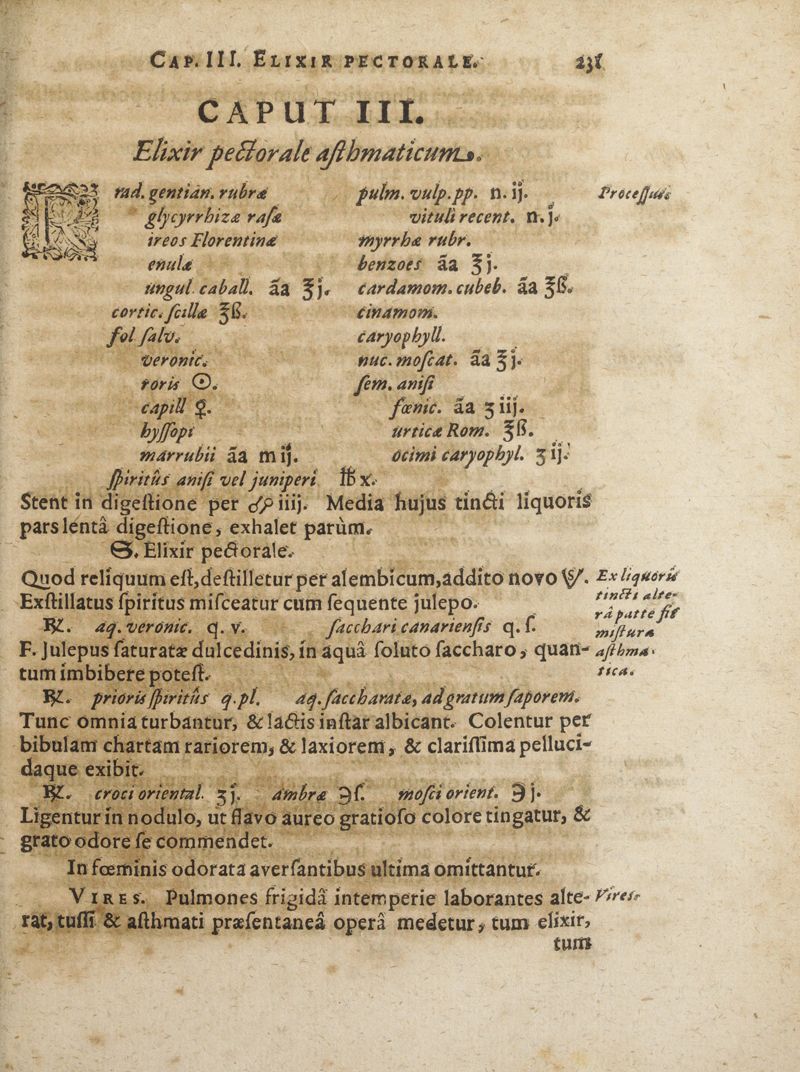 CAP. III. ELIXIR PECTORALE. 231
CAPUT III.
Elixir pectorale aſthmaticum.
℞ rad. gentian. rubræ
glycyrrhizæ raſæ
ireos Florentinæ
enulæ
ungul. caball. āā ℥j.
cortic. ſcillæ ℥ß.
fol ſalv.
veronic.
roris ☉.
capill ♀.
hyſſopi
marrubii āā m ij.
pulm. vulp. pp. n. ij.
vituli recent. n. j.
myrrhæ rubr.
benzoes āā ℥j.
cardamom. cubeb. āā ℥ß.
cinamom.
caryophyll.
nuc. moſcat. āā ℥j.
ſem. aniſi
fœnic. āā ʒiij.
urticæ Rom. ℥ß.
ocimi caryophyl. ʒij.
ſpiritûs aniſi vel juniperi ℔ x.
Proceſſus
Stent in digeſtione per iiij. Media hujus tincti liquoris
pars lentâ digeſtione, exhalet parùm.
Elixir pectorale.
Quod reliquum eſt, deſtilletur per alembicum, addito novo
Exſtillatus ſpiritus miſceatur cum ſequente julepo.
℞. aq. veronic. q. v. ſacchari canarienſis q. ſ.
F. Julepus ſaturatæ dulcedinis, in aquâ ſoluto ſaccharo, quan-
tum imbibere poteſt.
Ex liquoris
tincti alte-
râ parte fit
miſtura
aſthma-
tica.
℞. prioris ſpiritûs q. pl. aq. ſaccharatæ, ad gratum ſaporem.
Tunc omnia turbantur, & lactis inſtar albicant. Colentur per
bibulam chartam rariorem, & laxiorem, & clariſſima pelluci-
daque exibit.
℞. croci oriental. ʒj. ambræ ℈ſ. moſci orient. ℈j.
Ligentur in nodulo, ut flavo aureo gratioſo colore tingatur, &
grato odore ſe commendet.
In fœminis odorata averſantibus ultima omittantur.
VIRES. Pulmones frigidâ intemperie laborantes alte-
rat, tuſſi & aſthmati præſentaneâ operâ medetur, tum elixir,
Vires.
tum